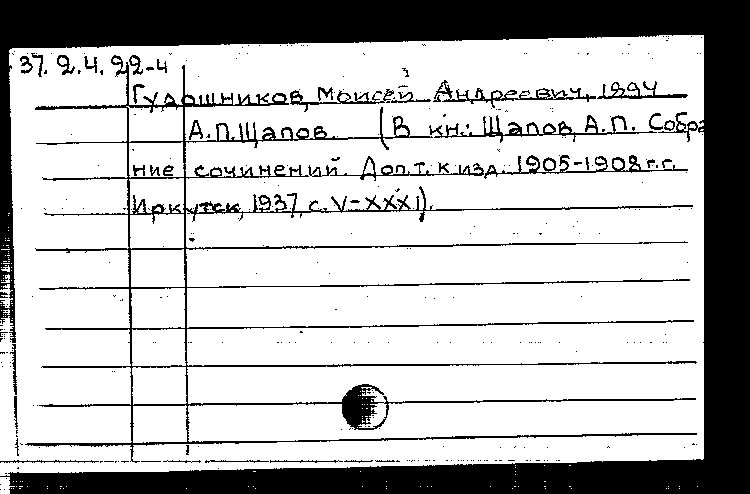 37.2.4.22-4
Гудошников, Моисей Андреевич, 1894
А.П.Щапов. (В кн.: Щапов, А.П. Собра
ние сочинений. Доп.т. к изд. 1905-1908 г.г.
Иркутск, 1937, с. V-XXXI).